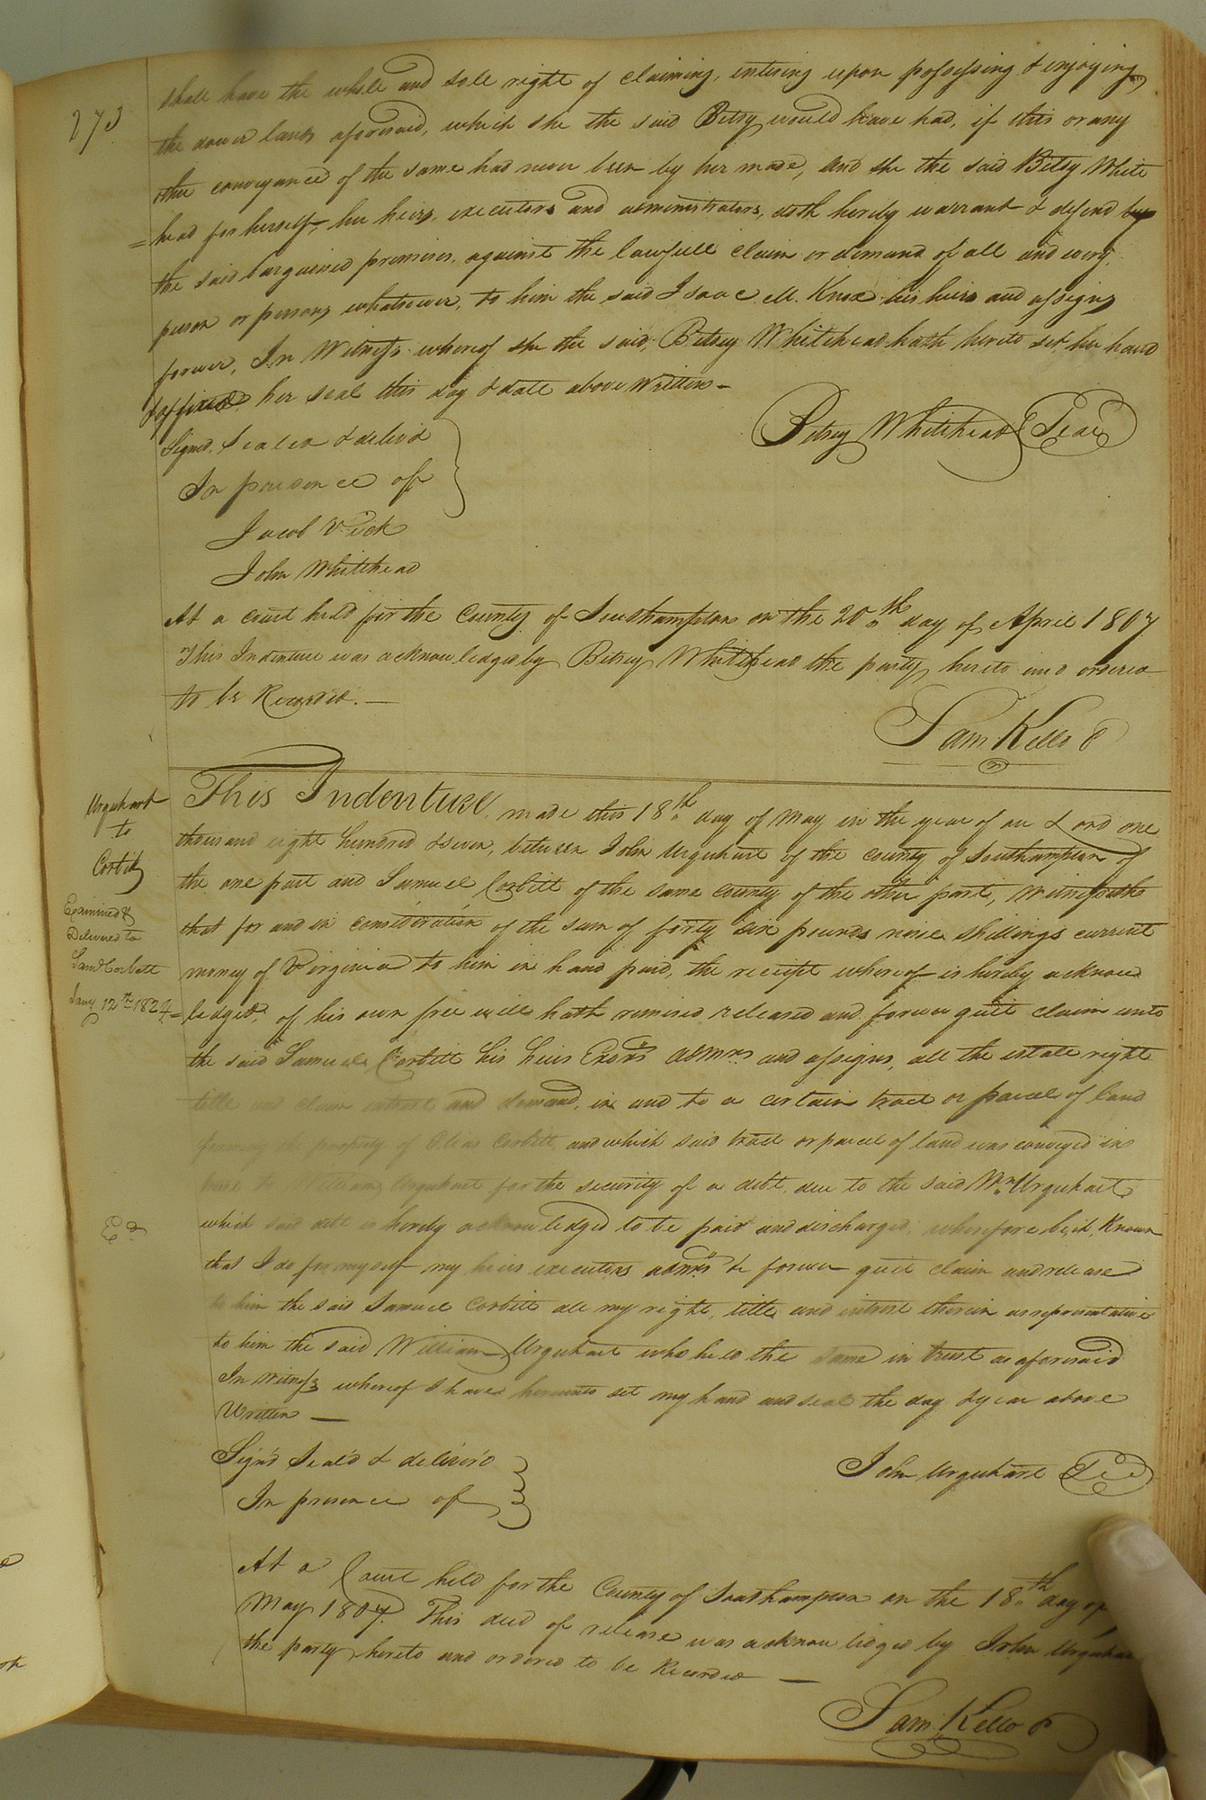 273
shall have the whole and sole right of claiming, entering upon possessing & enjoying
the dower lands aforesaid, which she the said Betsy would have had, if this or any
other conveyance of the same had never been by her made, and she the said Betsy White
=head for herself, her heirs, executors and administrators, doth hereby warrant & defend
the said bargained premises, against the lawfull claim or demand of all and every
person or persons whatsoever, to him the said Isaac M. Knox his heirs and assigns
forever, In Witness whereof she the said Betsey Whitehead hath hereto set her hand
& affixed her seal this day & date above Written —
Signed, Sealed & deliv'd
In presence of
Betsey Whitehead Seal
Jacob Vick
John Whitehead
At a court held for the County of Southampton on the 20th day of April 1807
This Indenture was acknowledged by Betsey Whitehead the party hereto and ordered
to be Recorded. —
Sam Kello
Urquhart
to
Corbitt
Examined &
Delivered to
Saml Corbett
Jany 12th 1824
This Indenture, made this 18th day of May in the year of our Lord one
thousand eight hundred & seven, between John Urquhart of the county of Southampton of
the one part and Samuel Corbitt of the same county of the other part, Witnesseth
that for and in consideration of the sum of forty six pounds nine shillings current
money of Virginia to him in hand paid, the receipt whereof is hereby acknow
=ledged, of his own free will hath remised released and forever quit claim unto
the said Samuel Corbitt his heirs Exors admrs and assigns, all the estate right
title and claim interest and demand, in and to a certain tract or parcel of land
formerly the property of Elias Corbitt, and which said tract or parcel of land was conveyed in
trust to William Urquhart for the security of a debt due to the said Wm Urquhart
which said debt is hereby acknowledged to be paid and discharged, wherefore be it Known
Ed
that I do for myself my heirs executors admrs &c forever quit claim and release
to him the said Samuel Corbitt all my right, title and interest therein as representative
to him the said William Urquhart who held the same in trust as aforesaid
In witness whereof I have hereunto set my hand and seal the day & year above
Written —
Sign'd Seal'd & deliver'd
In presence of
John Urquhart Seal
At a Court held for the County of Southampton on the 18th day of
May 1807. This deed of release was acknowledged by John
the party hereto and ordered to be Recorded —
Sam Kello